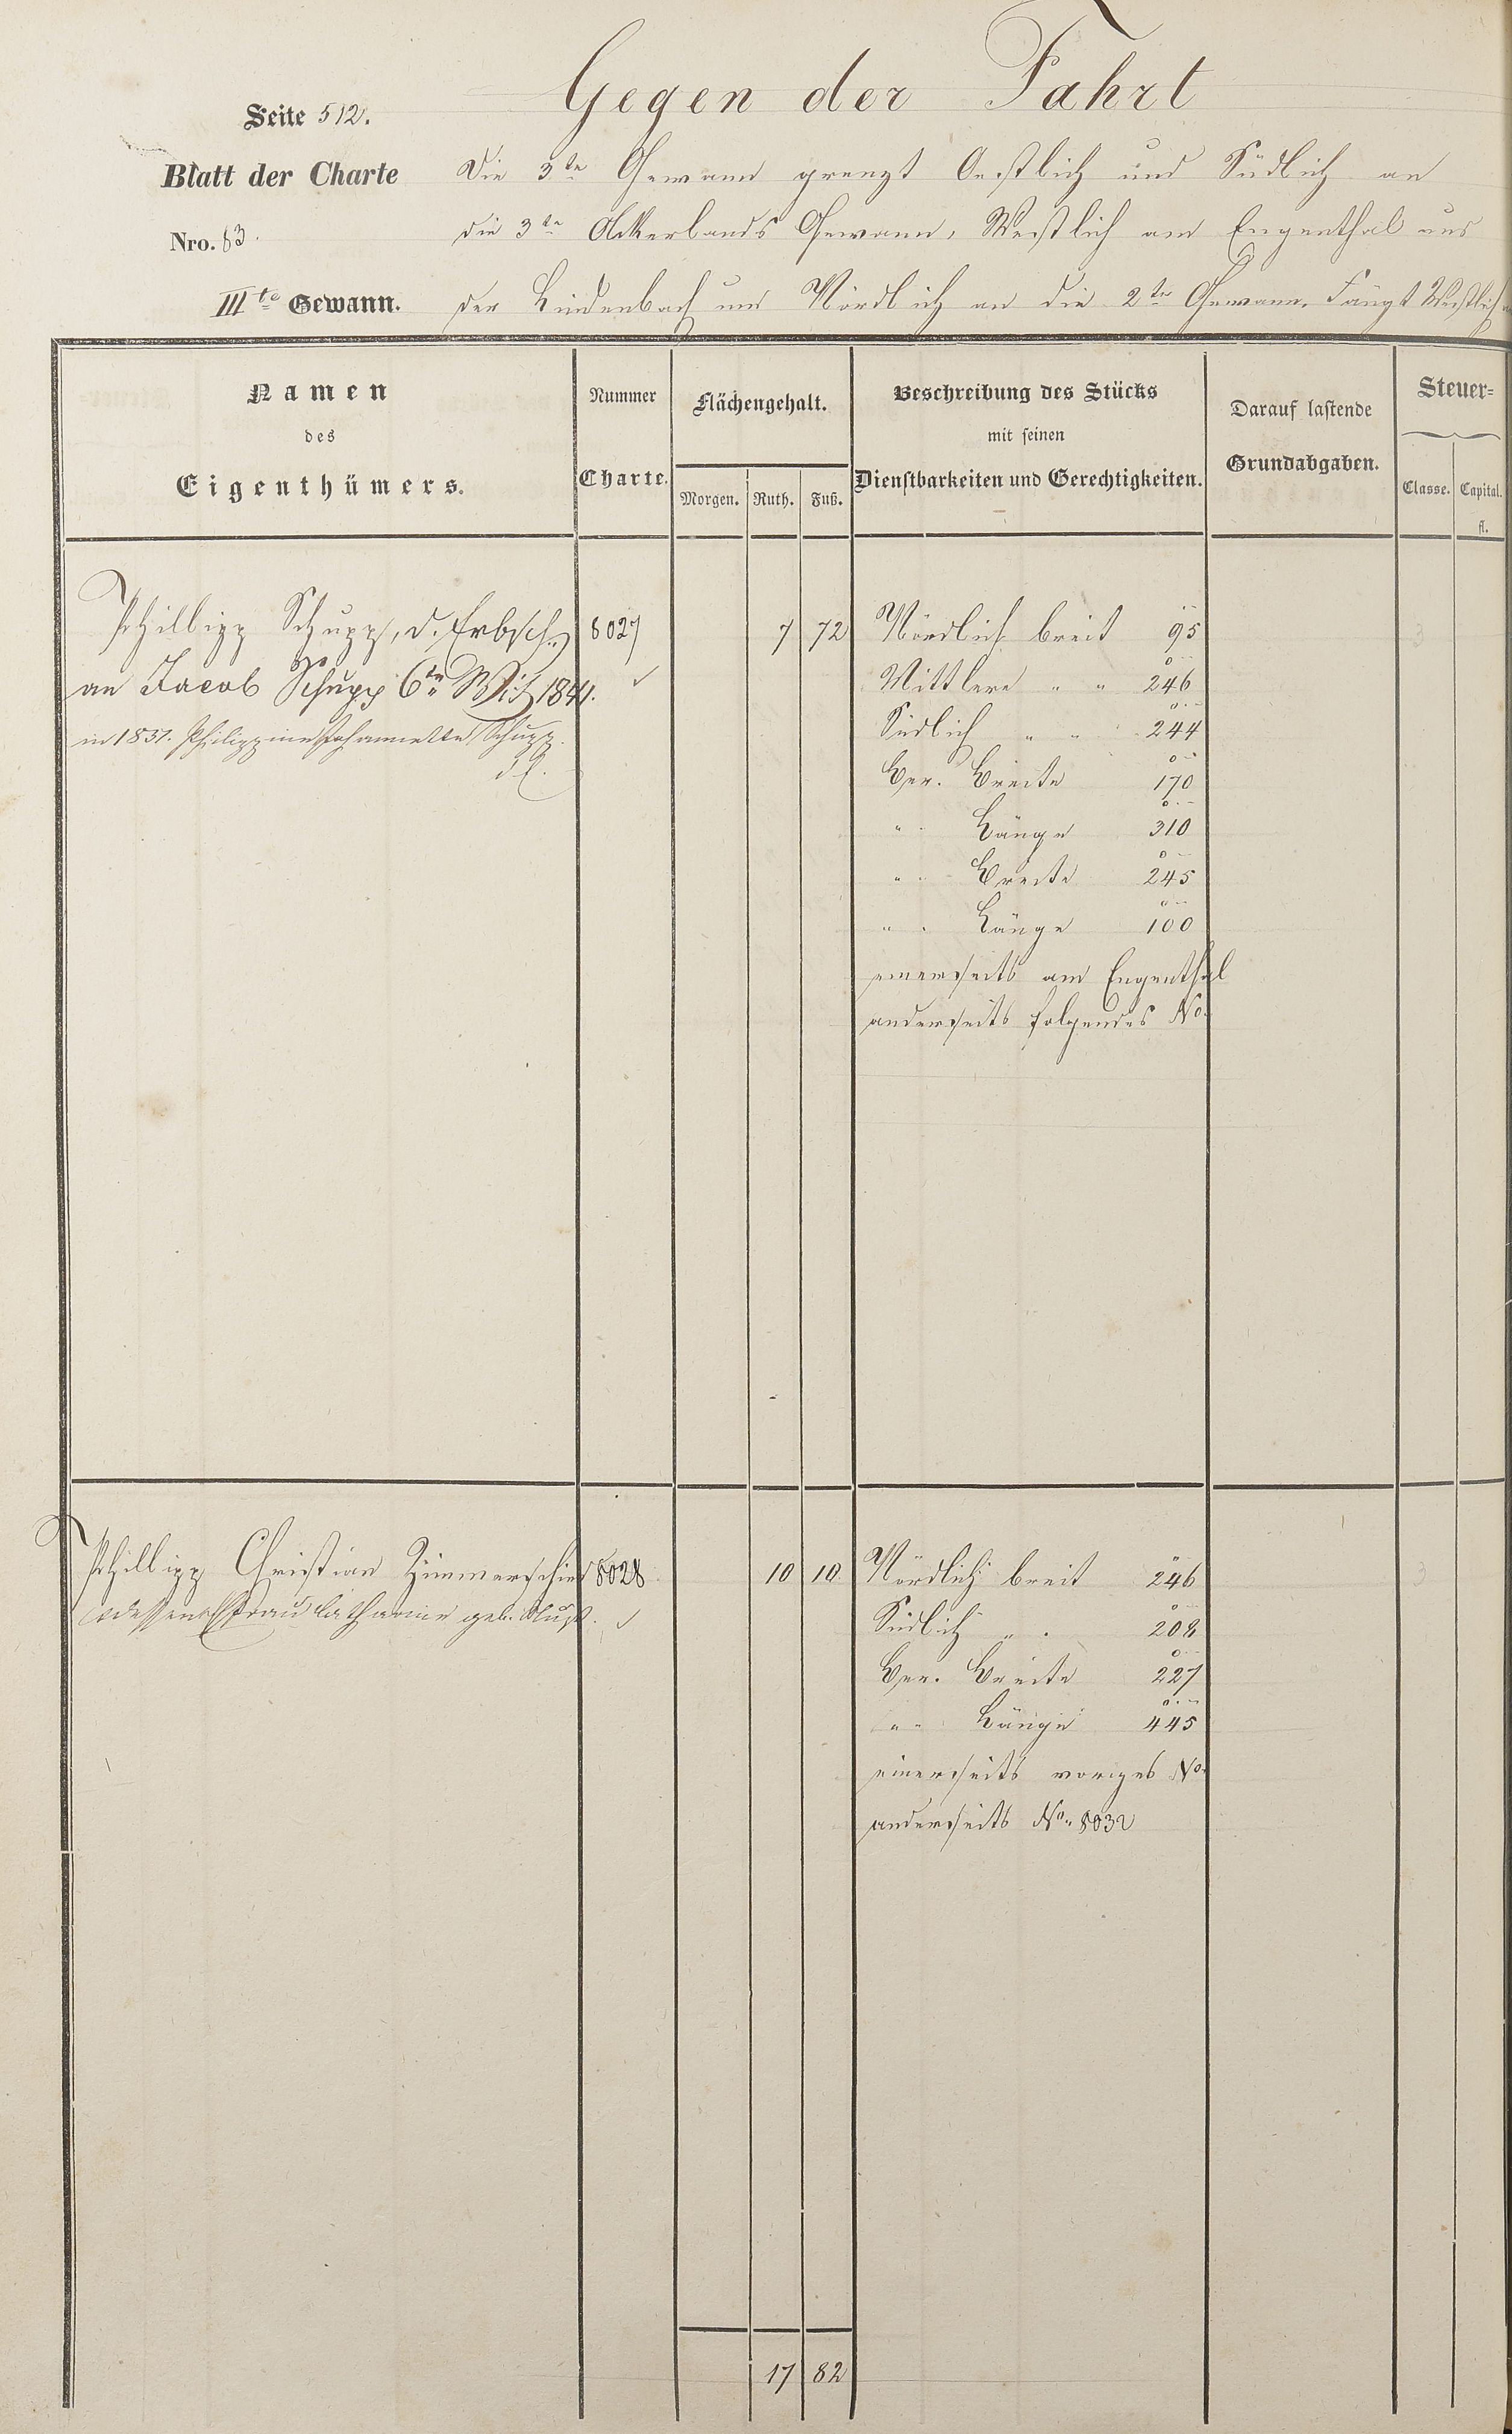 Gegen der Fahrt
Seite 512.
Blatt der Charte
Nro. 83.
IIIte Gewann.
Die 3te Gewann grenzt Oestlich und Südlich an
die 3te Ackerlands Gewann, Westlich am Engenthal und
der Lindenbach und Nördlich an die 2te Gewann. Fängt Westlich
Namen
des
Eigenthümers.
Nummer
Charte.
Flächengehalt.
Morgen. Ruth. Fuß.
Beschreibung des Stücks
mit seinen
Dienstbarkeiten und Gerechtigkeiten.
Darauf lastende
Grundabgaben.
Steuer=
Classe. Capital.
fl.
Phillipp Schupp, d. Erbsch. 8027 7 72 Nördlich breit 95 3
an Jacob Schupp 6te 1841. Mittlere " " 246
in 1851. Philippine Johannette Schupp. Südlich " " 244
Ber. Breite 170
" Länge 310
" Breite 245
" Länge 100
einerseits am Engenthal
anderseits folgendes No.
Phillipp Christian Zimmerschied 8028 10 10 Nördlich breit 246 3
dessen Ehefrau Catharine geb. Südlich " " 208
Ber. Breite 227
" Länge 445
einerseits voriges No.
anderseits No. 8032
17 82